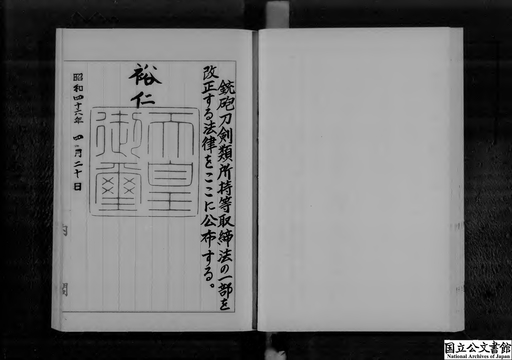 銃砲刀剣類所持等取締法の一部を
改正する法律をここに公布する。
裕仁
天皇
御璽
昭和四十六年 四月二十日
内 閣
国立公文書館
National Archives of Japan